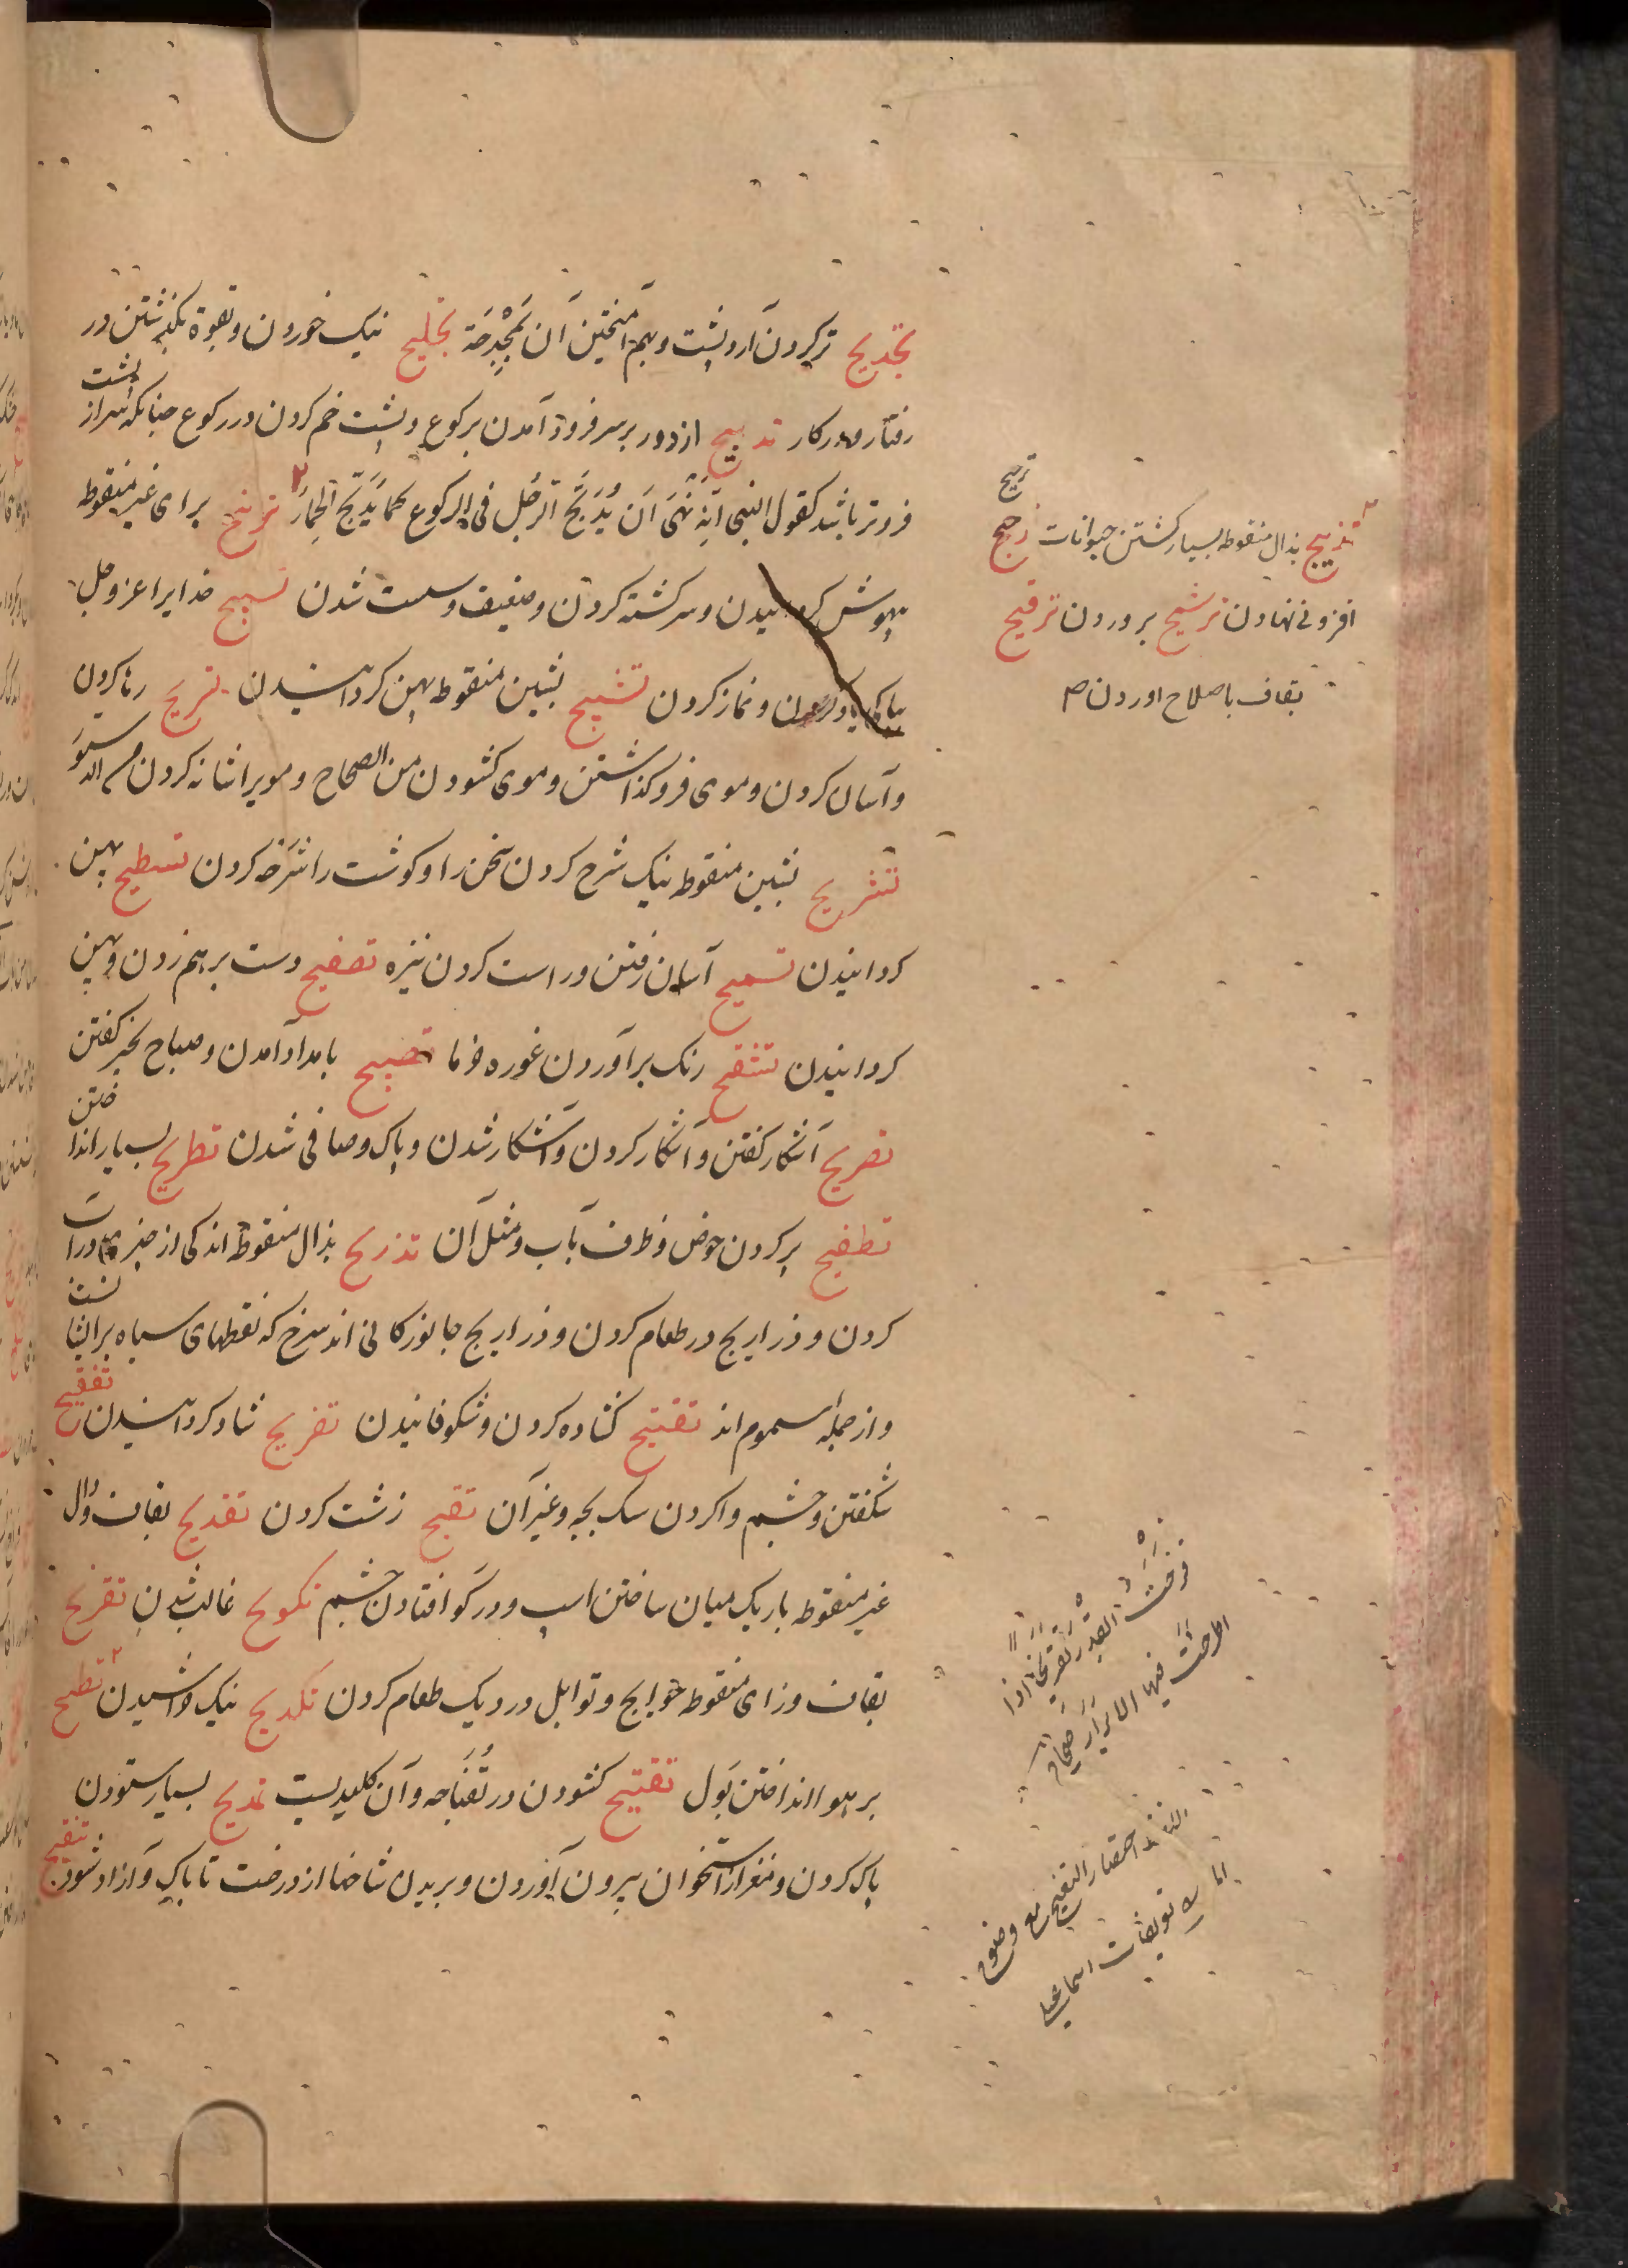 تجدیح تر کردن آرد و پشت و بهم آمیختن آن بمجدحة تجلیح نیک خوردن و بقوة بگذشتن در
رفتار و در کار تدبیح از دور بر سر فرود آمدن بر کوع و پشت خم کردن در رکوع چنانکه سر از پشت
فروتر باشد کقول النبی انه نهی ان یدبح الرجل فی الرکوع کما یدبح الحمار ترنیح برای غیر منقوطه
بیهوش کردانیدن و سرکشته کردن و ضعیف و سست شدن تسبیح خدایرا عز و جل
بپاکی یاد کردن و نماز کردن تشبیح بشین منقوطه پهن کردانیدن تسریح رها کردن
و آسان کردن و موی فروکذاشتن و موی کشودن من الصحاح و مویرا شانه کردن من الدستور
تشریح بشین منقوطه نیک شرح کردن سخن را و کوشت را شرحه کردن تسطیح پهن
کردانیدن تسمیح آسان رفتن و راست کردن نیزه تصفیح دست بر هم زدن و پهن
کردانیدن تشقیح رنک برآوردن غوره خرما تصبیح بامداد آمدن و صباح بخیر کفتن
تصریح آشکار کفتن و آشکار کردن و آشکار شدن و پاک و صافی شدن تطریح بسیار انداختن
تطفیح پر کردن حوض و ظرف بآب و مثل آن تذریح بذال منقوطه اندکی از چیز در آب
کردن و ذراریح در طعام کردن و ذراریح جانورکانی اند سرخ که نقطهای سیاه بر ایشانست
و از جمله سموم اند تفتیح کشاده کردن و شکوفانیدن تفریح شاد کردانیدن تفقیح
شکفتن و چشم وا کردن سک بچه و غیر آن تقبیح زشت کردن تقدیح بقاف و دال
غیر منقوطه باریک میان ساختن اسپ و در کو افتادن چشم تکویح غالب شدن تقزیح
بقاف و زای منقوطه حوایج و توابل در دیک طعام کردن تکدیح نیک خراشیدن تطیح
بر هوا انداختن بول تفتیح کشودن در تفتاحه و آن کلیدیست تمدیح بسیار ستودن
پاک کردن و مغز از استخوان بیرون آوردن و بریدن شاخها از درخت تا پاک و آزاد شود تنقیح
تذبیح بذال منقوطه بسیار کشتن حیوانات ترجیح
افزونی نهادن ترشیح پروردن ترقیح
بقاف باصلاح اوردن ص
قزحت القدر تقزیحا اذا
طرحت فیها الابزار صحاح
التنقیح اختصار اللفظ مع وضوح